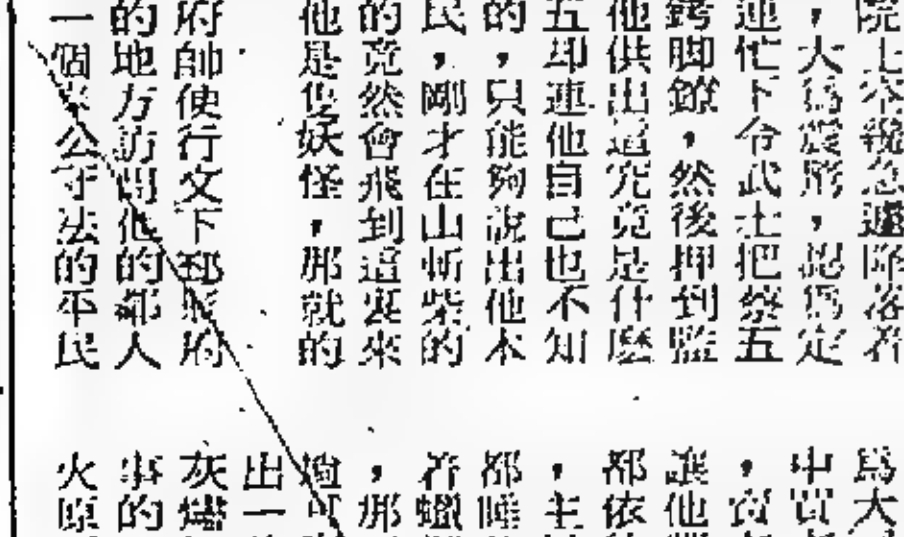 院上空飛急遽降落着
，大爲震形，認爲定
連忙下令武士把蔡五
銬脚鐐，然後押到監
他供出這究竟是什麼
五却連他自己也不知
的，只能夠說出他本
民，剛才在山斬柴的
的竟然會飛到這裏來
他是隻妖怪，那就的
府帥使行文下
的地方訪問他的鄰人
一個公守法的平民
爲大
中實
，
讓他
都依
，主
都睡
着蠟
，那
過可
出一
灰燼
事的
火原